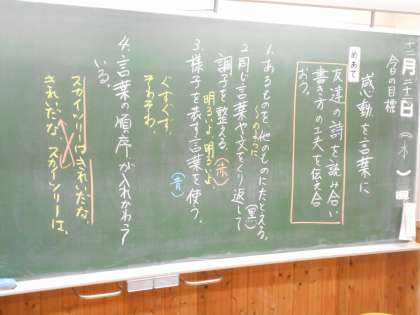 十二月二十一日(水)
今日の目標
感動を言葉に
めあて
友達の詩を読み合い
書き方の工夫を伝え合
おう。
1.あるものを、他のものにたとえる。
〜のように
(黒)
2.同じ言葉や文をくり返して
調子を整える。(赤)
明るいよ、明るいよ、
3.様子を表す言葉を使う。
(青)
ぐすぐす。
そわそわ。
4.言葉の順序が入れかわって
いる。
スカイツリーはきれいだな。
きれいだな スカイツリーは。